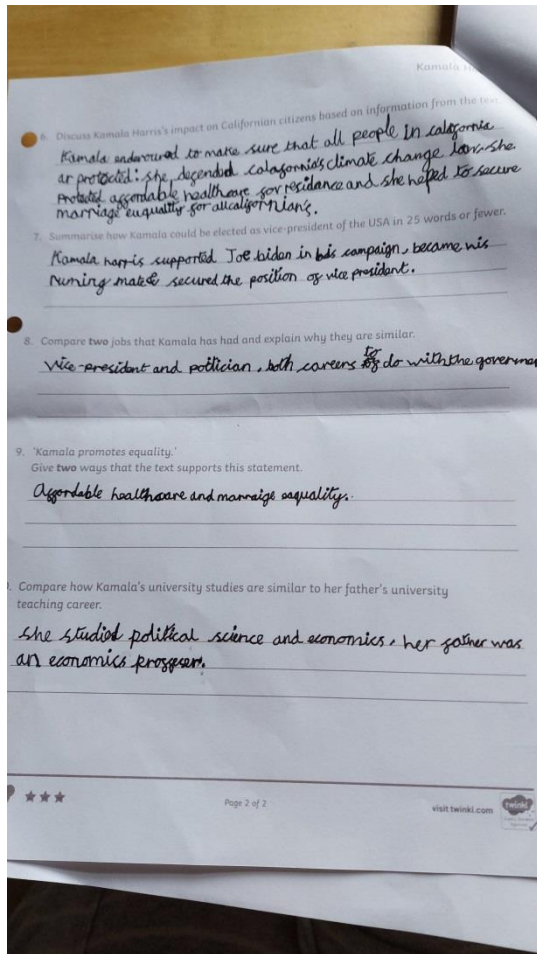 Kamala
6. Discuss Kamala Harris's impact on Californian citizens based on information from the text.
Kamala endevoured to make sure that all people in calafornia
ar protected: she, defended calafornia's climate change law, she
Protected affordable healthcare for residance and she helped to secure
marriage euquality for all califfornians.
7. Summarise how Kamala could be elected as vice-president of the USA in 25 words or fewer.
Kamala harris supported Joe biden in his campaign, became his
running mate & secured the position of vice president.
8. Compare two jobs that Kamala has had and explain why they are similar.
Vice-president and politician, both careers to do with the governmen
9. 'Kamala promotes equality.'
Give two ways that the text supports this statement.
Affordable healthcare and marraige eaquality.
. Compare how Kamala's university studies are similar to her father's university
teaching career.
She studied political science and economics, her father was
an economics proffeser.
Page 2 of 2
visit twinkl.com
twinkl